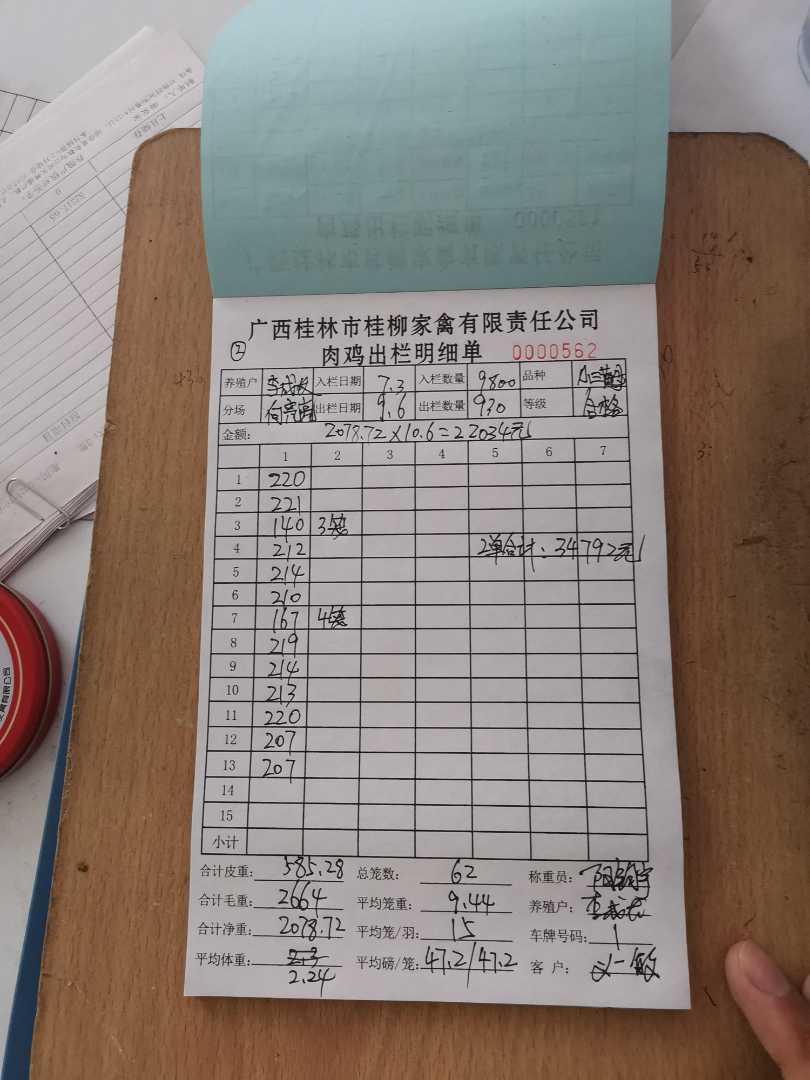 广西桂林市桂柳家禽有限责任公司
② 肉鸡出栏明细单 0000562
养殖户 入栏日期 7.3 入栏数量 9800 品种
分场 何亮富 出栏日期 9.6 出栏数量 930 等级 合格
金额: 2078.72×10.6=22034元
1 2 3 4 5 6 7
1 220
2 221
3 140 3笼
4 212 2单合计:34792元
5 214
6 210
7 167 4笼
8 219
9 214
10 213
11 220
12 207
13 207
14
15
小计
合计皮重: 585.28 总笼数: 62 称重员:
合计毛重: 2664 平均笼重: 9.44 养殖户:
合计净重: 2078.72 平均笼/羽: 15 车牌号码: 1
平均体重: 2.3 平均磅/笼: 47.2/47.2 客 户:
2.24